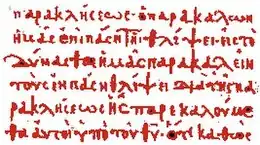 παρακλήσεως· ὁ παρακαλῶν
ἡμᾶς ἐπὶ πάσῃ τῇ θλίψει· εἰς τὸ
δύνασθαι ἡμᾶς παρακαλεῖν
τοὺς ἐν πάσῃ θλίψει διὰ τῆς πα
ρακλήσεως ἧς παρεκαλούμε
θα αὐτοὶ ὑπὸ τοῦ θυ· ὅτι καθὼς